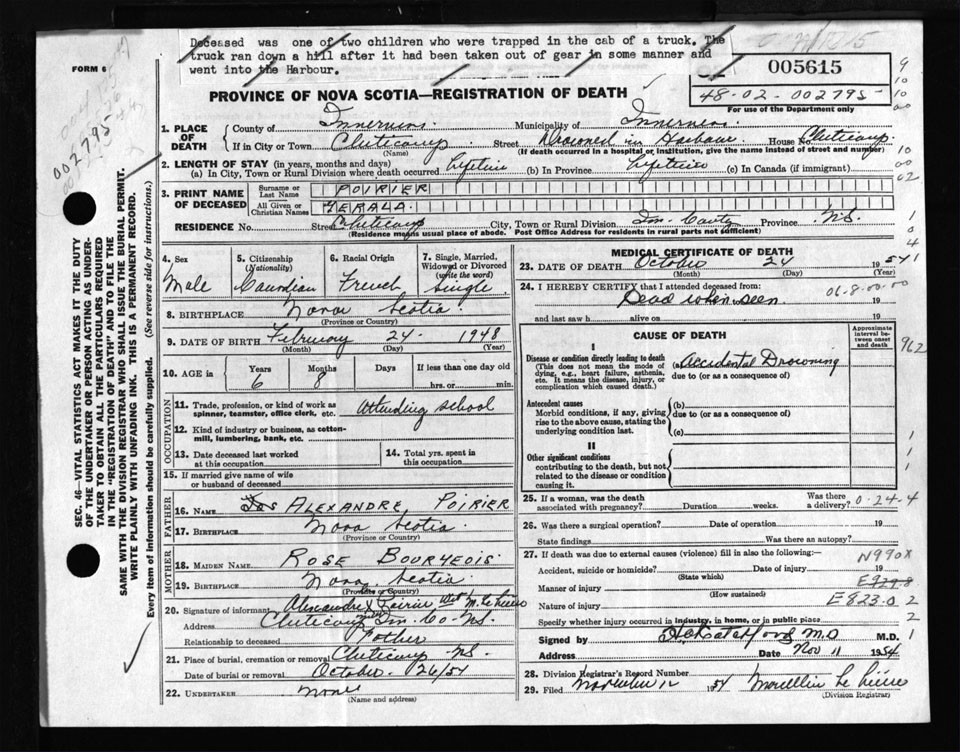 Deceased was one of two children who were trapped in the cab of a truck. The
truck ran down a hill after it had been taken out of gear in some manner and
went into the Harbour.
FORM 6
005615
48-02-002795
For use of the Department only
PROVINCE OF NOVA SCOTIA—REGISTRATION OF DEATH
002795
1. PLACE OF DEATH
County of Inverness Municipality of Inverness
If in City or Town Cheticamp Street Drowned in Harbour House No. Cheticamp
(Name) (If death occurred in a hospital or institution, give the name instead of street and number)
2. LENGTH OF STAY (in years, months and days)
(a) In City, Town or Rural Division where death occurred lifetime (b) In Province lifetime (c) In Canada (if immigrant)
3. PRINT NAME OF DECEASED
Surname or Last Name POIRIER
All Given or Christian Names GERALD
RESIDENCE No. Street Cheticamp City, Town or Rural Division Inv. County Province N.S.
(Residence means usual place of abode. Post Office Address for residents in rural parts not sufficient)
4. Sex Male
5. Citizenship (Nationality) Canadian
6. Racial Origin French
7. Single, Married, Widowed or Divorced (write the word) Single
8. BIRTHPLACE Nova Scotia
(Province or Country)
9. DATE OF BIRTH February 24 1948
(Month) (Day) (Year)
10. AGE in Years 6 Months 8 Days If less than one day
hrs. or min.
OCCUPATION
11. Trade, profession, or kind of work as spinner, teamster, office clerk, etc. Attending school
12. Kind of industry or business, as cotton-mill, lumbering, bank, etc.
13. Date deceased last worked at this occupation
14. Total yrs. spent in this occupation
15. If married give name of wife or husband of deceased
FATHER
16. NAME Jos ALEXANDRE POIRIER
17. BIRTHPLACE Nova Scotia
(Province or Country)
MOTHER
18. MAIDEN NAME ROSE BOURGEOIS
19. BIRTHPLACE Nova Scotia
(Province or Country)
20. Signature of informant Alexandre X Poirier
Address Cheticamp Inv. Co. N.S.
Relationship to deceased Father
21. Place of burial, cremation or removal Cheticamp N.S.
Date of burial or removal October 26/54
22. UNDERTAKER None
(Name and address)
MEDICAL CERTIFICATE OF DEATH
23. DATE OF DEATH October 24 1954
(Month) (Day) (Year)
24. I HEREBY CERTIFY that I attended deceased from:
Dead when seen 19
and last saw h alive on 19
06-8-00-00
CAUSE OF DEATH
Approximate interval between onset and death
I
Disease or condition directly leading to death (a) Accidental Drowning
(This does not mean the mode of dying, e.g., heart failure, asthenia, etc. It means the disease, injury, or complication which caused death.)
due to (or as a consequence of)
Antecedent causes
Morbid conditions, if any, giving rise to the above cause, stating the underlying condition last.
(b)
due to (or as a consequence of)
(c)
II
Other significant conditions contributing to the death, but not related to the disease or condition causing it.
962
25. If a woman, was the death associated with pregnancy? Duration weeks. Was there a delivery?
0-24-4
26. Was there a surgical operation? Date of operation 19
State findings Was there an autopsy?
27. If death was due to external causes (violence) fill in also the following:—
N990X
Accident, suicide or homicide? Date of injury 19
(State which)
E929.8
Manner of injury
(How sustained)
E823.0
Nature of injury
Specify whether injury occurred in industry, in home, or in public place
Signed by M.D. M.D.
Address Date Nov 11 1954
28. Division Registrar's Record Number
29. Filed November 12 1954
(Division Registrar)
SEC. 46—VITAL STATISTICS ACT MAKES IT THE DUTY
OF THE UNDERTAKER OR PERSON ACTING AS UNDER-
TAKER TO OBTAIN ALL THE PARTICULARS REQUIRED
IN THE "REGISTRATION OF DEATH" AND TO FILE THE
SAME WITH THE DIVISION REGISTRAR WHO SHALL ISSUE THE BURIAL PERMIT.
WRITE PLAINLY WITH UNFADING INK. THIS IS A PERMANENT RECORD.
Every item of information should be carefully supplied. (See reverse side for instructions.)